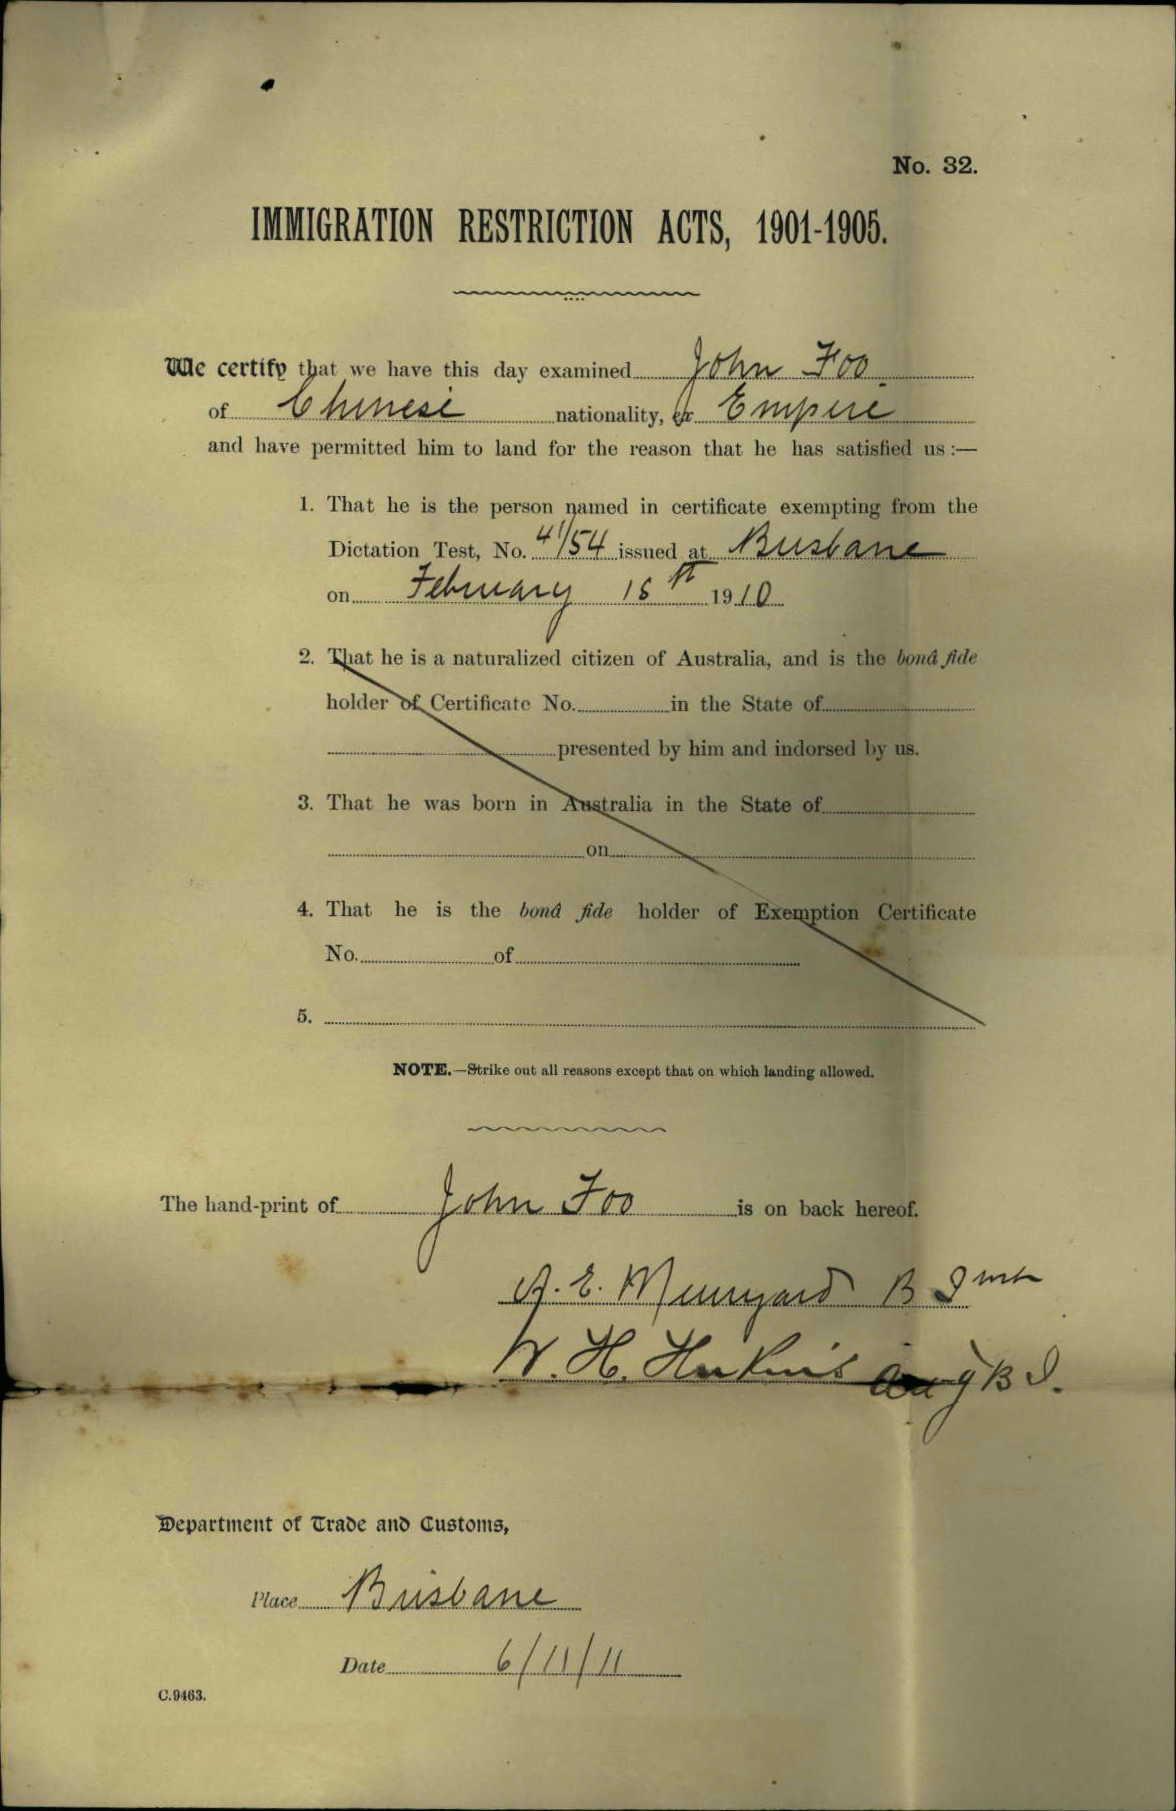 No. 32.
IMMIGRATION RESTRICTION ACTS, 1901-1905.
We certify that we have this day examined John Foo
of Chinese nationality, ex Empire
and have permitted him to land for the reason that he has satisfied us :—
1. That he is the person named in certificate exempting from the
Dictation Test, No. 41/54 issued at Brisbane
on February 1910
2. That he is a naturalized citizen of Australia, and is the bonâ fide
holder of Certificate No. in the State of
presented by him and indorsed by us.
3. That he was born in Australia in the State of
on
4. That he is the bonâ fide holder of Exemption Certificate
No. of
5.
NOTE.—Strike out all reasons except that on which landing allowed.
The hand-print of John Foo is on back hereof.
A. E. B
W. H. B I.
Department of Trade and Customs,
Place Brisbane
Date 6/11/11
C.9463.